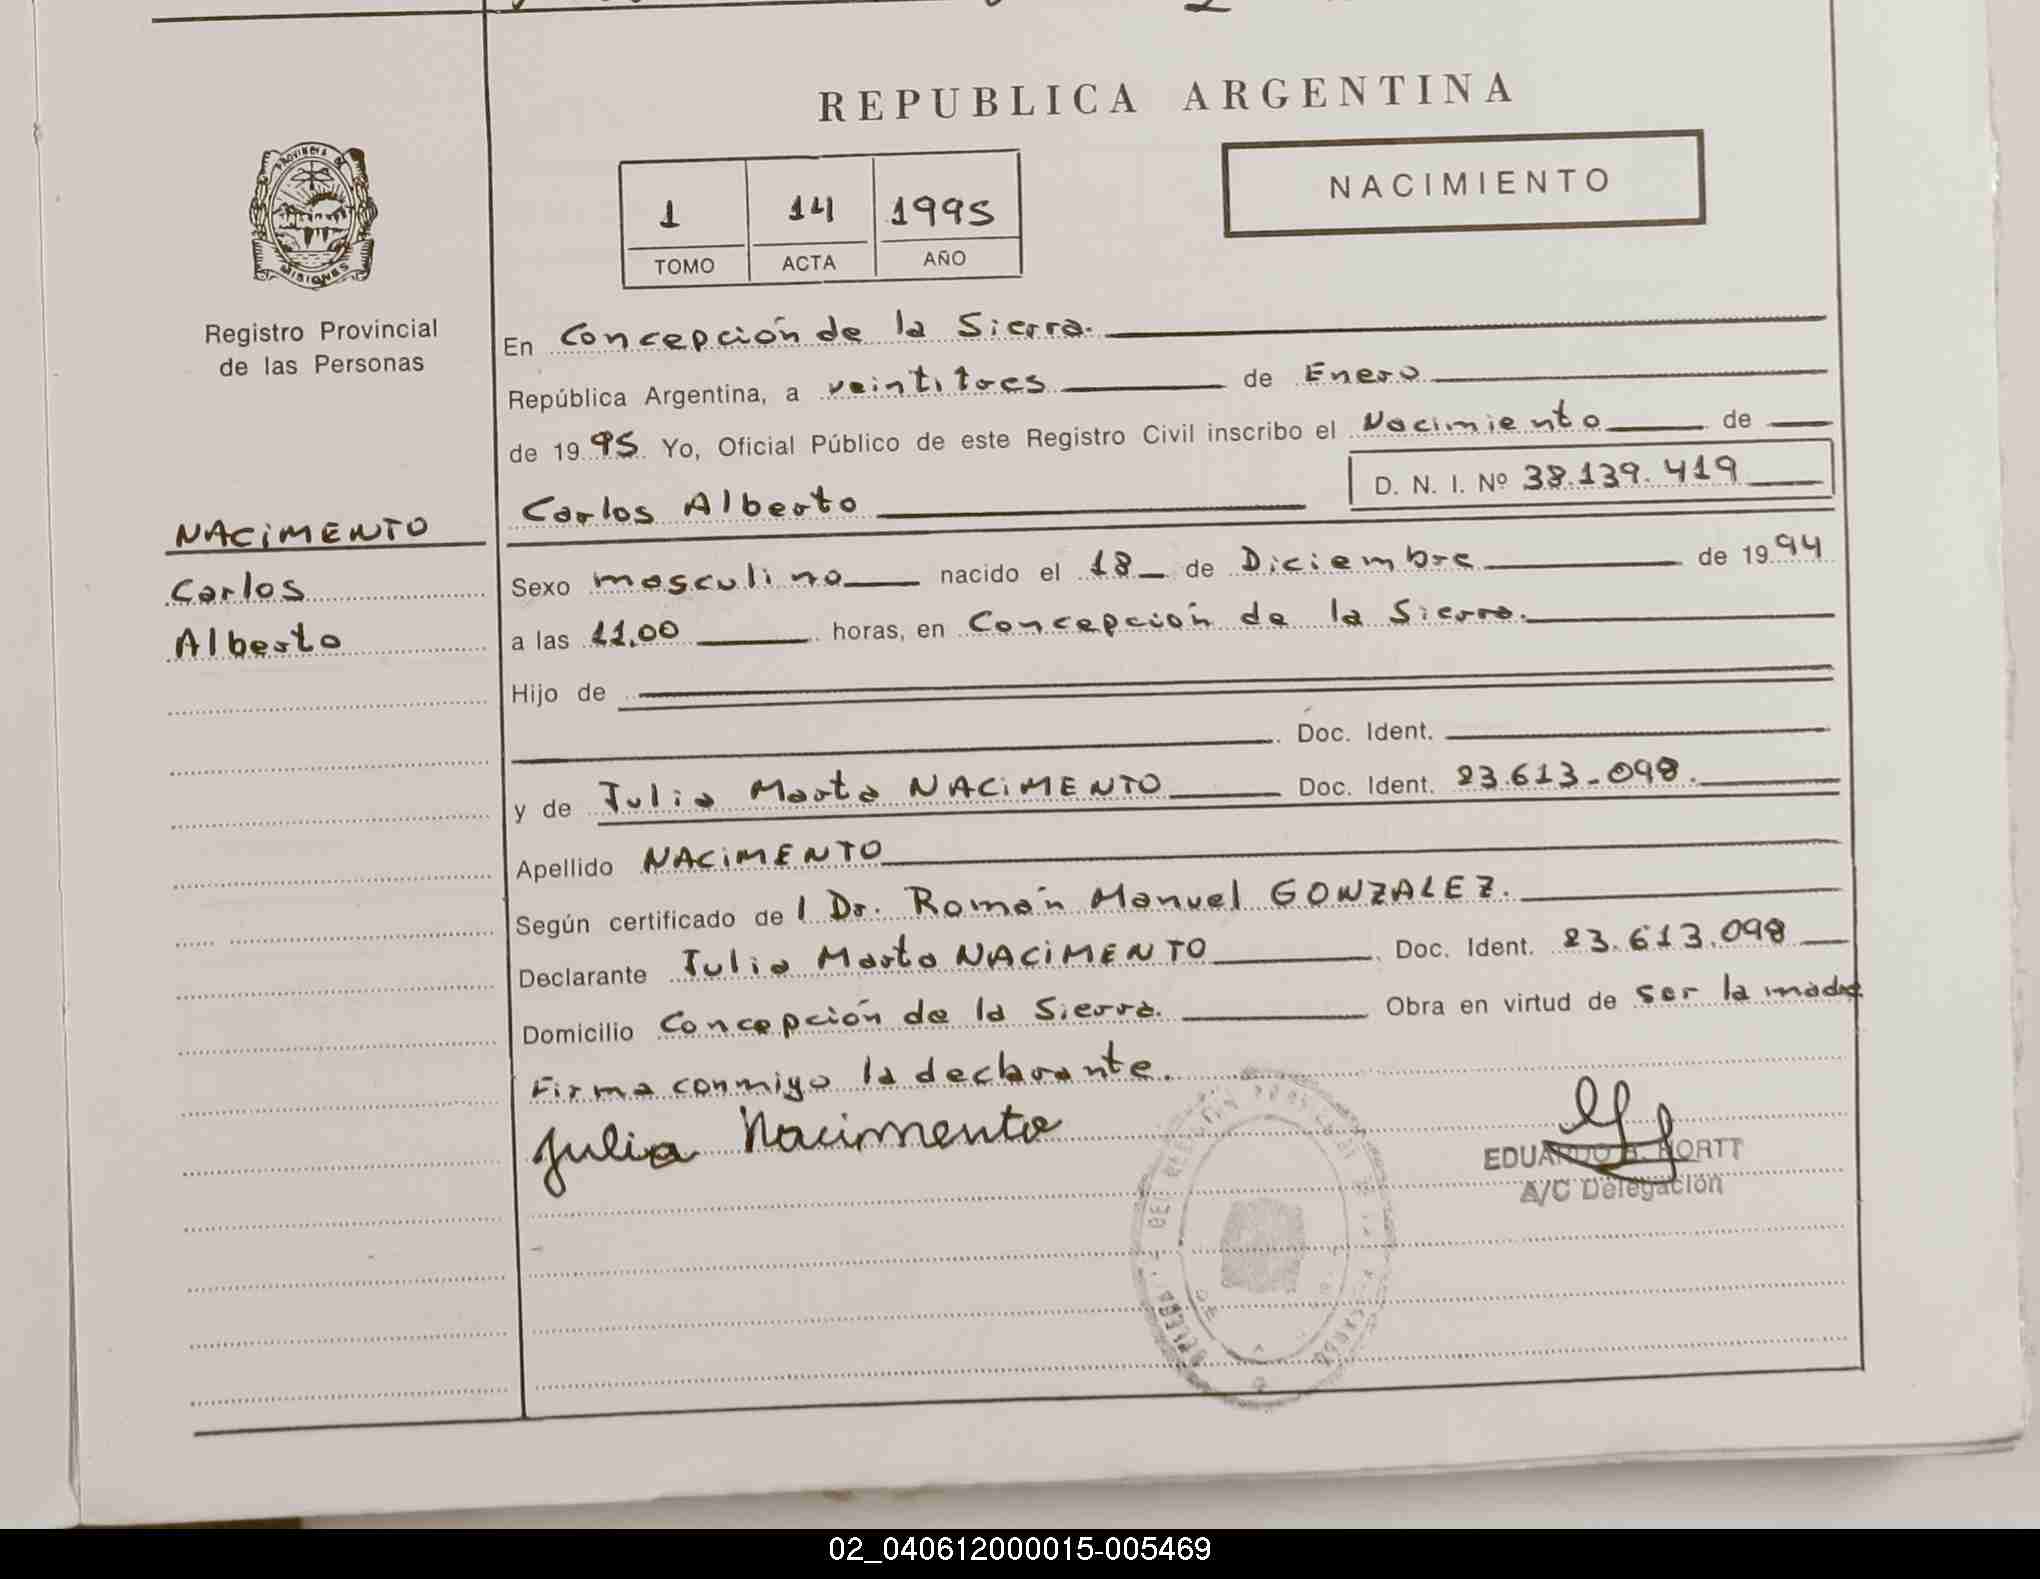 REPUBLICA ARGENTINA
NACIMIENTO
1 14 1995
TOMO ACTA AÑO
PROVINCIA DE
MISIONES
Registro Provincial
de las Personas
NACiMENTO
Carlos
Alberto
En Concepción de la Sierra.
República Argentina, a veintitres de Enero
de 1995 Yo, Oficial Público de este Registro Civil inscribo el Nacimiento de
Carlos Alberto D. N. I. Nº 38.139.419
Sexo masculino nacido el 18 de Diciembre de 1994
a las 11,00 horas, en Concepción de la Sierra.
Hijo de
Doc. Ident.
y de Julia Marta NACiMENTO Doc. Ident. 23.613.098.
Apellido NACiMENTO
Según certificado del Dr. Román Manuel GONZALEZ.
Declarante Julia Marta NACiMENTO Doc. Ident. 23.613.098
Domicilio Concepción de la Sierra. Obra en virtud de ser la madre
Firma conmigo la declarante.
Julia Nacimento
EDUARDO HORTT
A/C Delegación
02_040612000015-005469